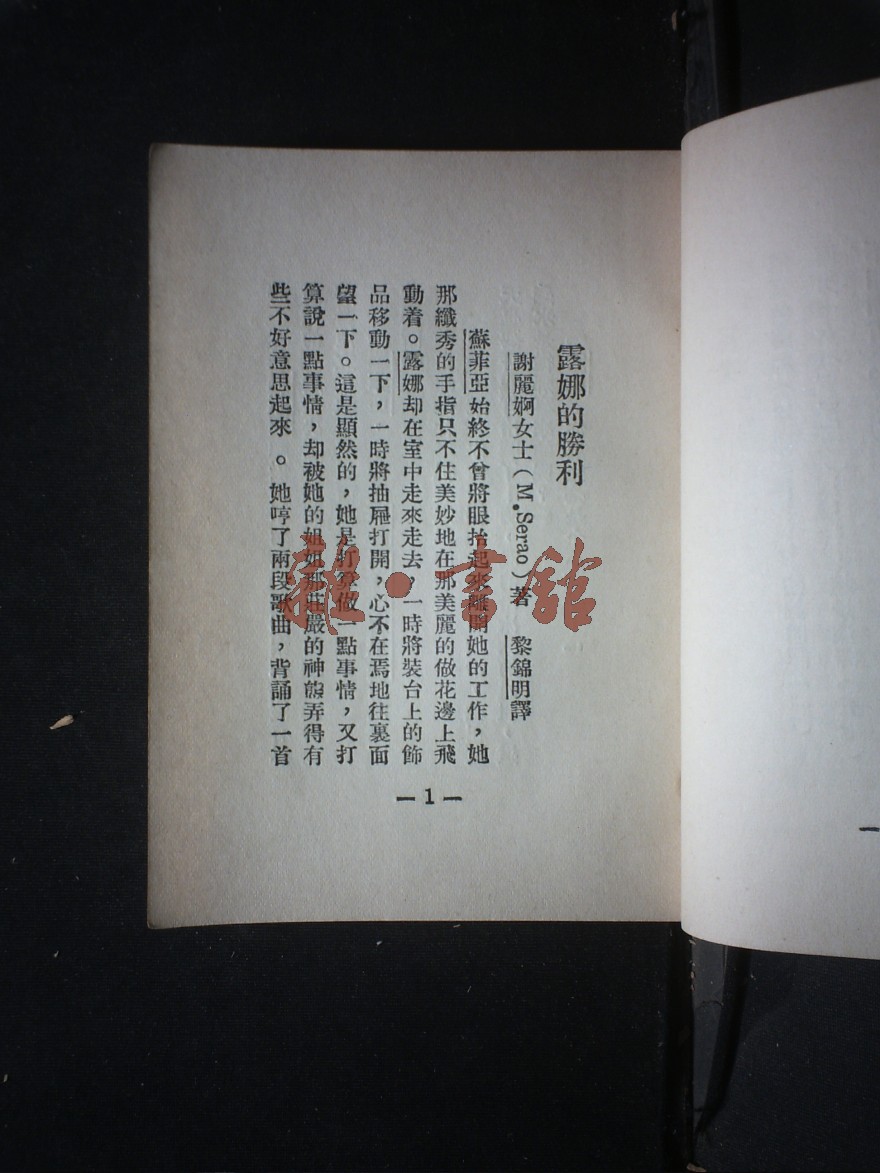 露娜的勝利
謝麗婀女士(M.Serao)著　黎錦明譯
蘇菲亞始終不曾將眼抬起來離開她的工作，她
那纖秀的手指只不住美妙地在那美麗的做花邊上飛
動着。露娜却在室中走來走去，一時將裝台上的飾
品移動一下，一時將抽屜打開，心不在焉地往裏面
望一下。這是顯然的，她是打算做一點事情，又打
算說一點事情，却被她的姐姐那莊嚴的神態弄得有
些不好意思起來。她哼了兩段歌曲，背誦了一首
—1—
雜·書館